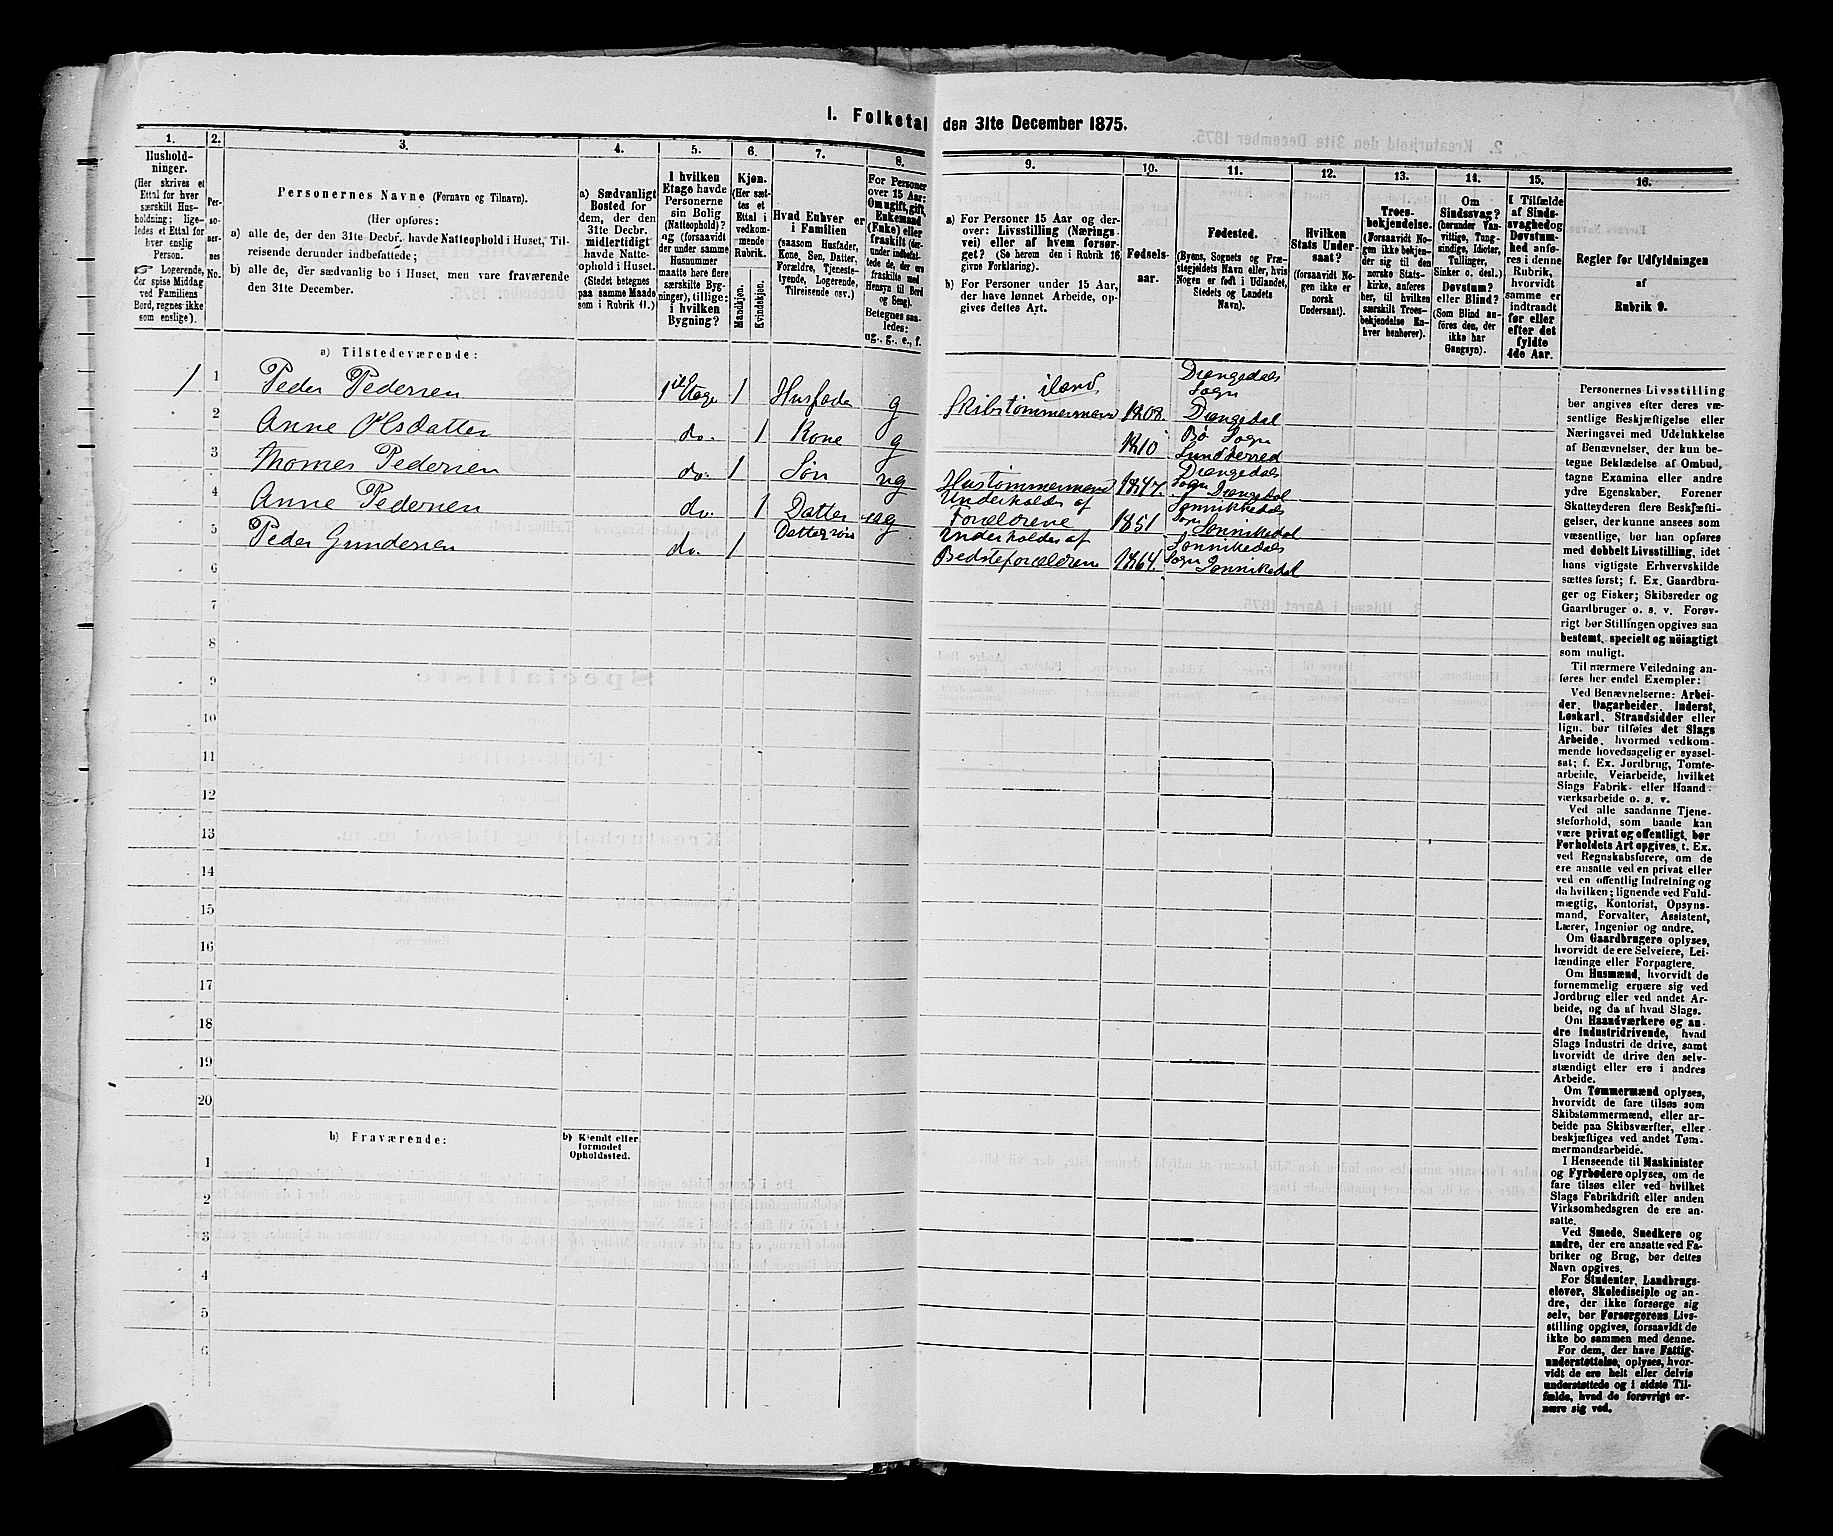 I. Folketal den 31te December 1875.
1.
Hushold-
ninger.
(Her skrives et
Ettal for hver
særskilt Hus-
holdning; lige-
ledes et Ettal for
hver enslig
Person.
☞ Logerende,
der spise Middag
ved Familiens
Bord, regnes ikke
som enslige).
2.
Per-
so-
ner-
nes
No.
3.
Personernes Navne (Fornavn og Tilnavn).
(Her opføres:
a) alle de, der den 31te Decbr. havde Natteophold i Huset, Til-
reisende derunder indbefattede;
b) alle de, der sædvanlig bo i Huset, men vare fraværende
den 31te December.
4.
a) Sædvanligt
Bosted for
dem, der den
31te Decbr.
midlertidigt
havde Natte-
ophold i Huset.
(Stedet betegnes
paa samme Maade
som i Rubrik 11.)
5.
I hvilken
Etage havde
Personerne
sin Bolig
(Natteophold)?
og (forsaavidt
der under samme
Husnummer
maatte være flere
særskilte Byg-
ninger), tillige:
i hvilken
Bygning?
6.
Kjøn.
(Her sæt-
tes et
Ettal i
vedkom-
mende
Rubrik.
Mandkjøn.
Kvindekjøn.
7.
Hvad Enhver er
i Familien
(saasom Husfader,
Kone, Søn, Datter,
Forældre, Tjeneste-
tyende, Logerende,
Tilreisende osv.)
8.
For Personer
over 15 Aar:
Om ugift, gift,
Enkemand
(Enke) eller
fraskilt (der-
under indbefat-
tede de, der ere
fraskilte med
Hensyn til Bord
og Seng).
Betegnes saa-
ledes:
ug., g., e., f.
9.
a) For Personer 15 Aar og der-
over: Livsstilling (Nærings-
vei) eller af hvem forsør-
get? (Se herom den i Rubrik 16
givne Forklaring).
b) For Personer under 15 Aar,
der have lønnet Arbeide, op-
gives dettes Art.
10.
Fødsels-
aar.
11.
Fødested.
(Byens, Sognets og Præ-
stegjeldets Navn eller, hvis
Nogen er født i Udlandet,
Stedets og Landets
Navn).
12.
Hvilken
Stats Under-
saat?
(forsaavidt No-
gen ikke er
norsk
Undersaat).
13.
Troes-
bekjendelse.
(Forsaavidt No-
gen ikke bekjen-
der sig til den
norske Stats-
kirke, anføres
her, til hvilken
særskilt Troes-
bekjendelse En-
hver henhører).
14.
Om
Sindssvag?
(herunder Van-
vittige, Tung-
sindige, Idioter,
Tullinger,
Sinker o. desl.)
Døvstum?
eller Blind?
(Som Blind an-
føres den, der
ikke har
Gangsyn).
15.
I Tilfælde
af Sinds-
svaghed og
Døvstum-
hed anfø-
res i denne
Rubrik,
hvorvidt
samme er
indtraadt
før eller
efter det
fyldte
4de Aar.
16.
Regler for Udfyldningen
af
Rubrik 9.
a) Tilstedeværende:
1 1 Peder Pedersen 1ste Etage 1 Husfader g Skibstømmermand iland 1808. Drangedals Sogn Drangedal
2 Anne Olsdatter do. 1 Kone g 1810 Bø Sogn
3 Thomes Pedersen do. 1 Søn ug Hustømmermand 1847. Drangedals Sogn Drangedal
4 Anne Pedersen do. 1 Datter ug Underholdes af Forældrene 1851 Sannikedals Sogn Sannikedal
5 Peder Gundersen do. 1 Dattersøn Underholdes af Bedsteforældrene 1864. Sannikedals Sogn Sannikedal
6
7
8
9
10
11
12
13
14
15
16
17
18
19
20
b) Fraværende:
b) Kjendt eller
formodet
Opholdssted.
1
2
3
4
5
6
Personernes Livsstilling
bør angives efter deres væ-
sentlige Beskjæftigelse eller
Næringsvei med Udelukkelse
af Benævnelser, der kun be-
tegne Beklædelse af Ombud,
tagne Examina eller andre
ydre Egenskaber. Forener
Skatteyderen flere Beskjæfti-
gelser, der kunne ansees som
væsentlige, bør han opføres
med dobbelt Livsstilling, idet
hans vigtigste Erhvervskilde
sættes først; f. Ex. Gaardbru-
ger og Fisker; Skibsreder og
Gaardbruger o. s. v. Forøv-
rigt bør Stillingen opgives saa
bestemt, specielt og nøiagtigt
som muligt.
Til nærmere Veiledning an-
føres her endel Exempler:
Ved Benævnelserne: Arbei-
der, Dagarbeider, Inderst,
Løskarl, Strandsidder eller
lign. bør tilføies det Slags
Arbeide, hvormed vedkom-
mende hovedsagelig er syssel-
sat; f. Ex. Jordbrug, Tomte-
arbeide, Veiarbeide, hvilket
Slags Fabrik- eller Haand-
værksarbeide o. s. v.
Ved alle saadanne Tjene-
steforhold, som baade kan
være privat og offentligt, bør
Forholdets Art opgives, t. Ex.
ved Regnskabsførere, om de
ere ansatte ved en privat eller
ved en offentlig Indretning og
da hvilken; lignende ved Fuld-
mægtig, Kontorist, Opsyns-
mand, Forvalter, Assistent,
Lærer, Ingeniør og andre.
Om Gaardbrugere oplyses,
hvorvidt de ere Selveiere, Lei-
lændinge eller Forpagtere.
Om Husmænd, hvorvidt de
fornemmelig ernære sig ved
Jordbrug eller ved andet Ar-
beide, og da af hvad Slags.
Om Haandværkere og an-
dre Industridrivende, hvad
Slags Industri de drive, samt
hvorvidt de drive den selv-
stændigt eller ere i andres
Arbeide.
Om Tømmermænd oplyses,
hvorvidt de fare tilsøs som
Skibstømmermænd, eller ar-
beide paa Skibsværfter, eller
beskjæftiges ved andet Tøm-
mermandsarbeide.
I Henseende til Maskinister
og Fyrbødere oplyses, om de
fare tilsøs eller ved hvilket
Slags Fabrikdrift eller anden
Virksomhedsgren de ere an-
satte.
Ved Smede, Snedkere og
andre, der ere ansatte ved Fa-
briker og Brug, bør dettes
Navn opgives.
For Studenter, Landbrugs-
elever, Skoledisciple og an-
dre, der ikke forsørge sig
selv, bør Forsørgerens Livs-
stilling opgives, forsaavidt de
ikke bo sammen med denne.
For dem, der have Fattig-
understøttelse, oplyses, hvor-
vidt de ere helt eller delvis
understøttede og i sidste Til-
fælde, hvad de forøvrigt er-
nære sig ved.